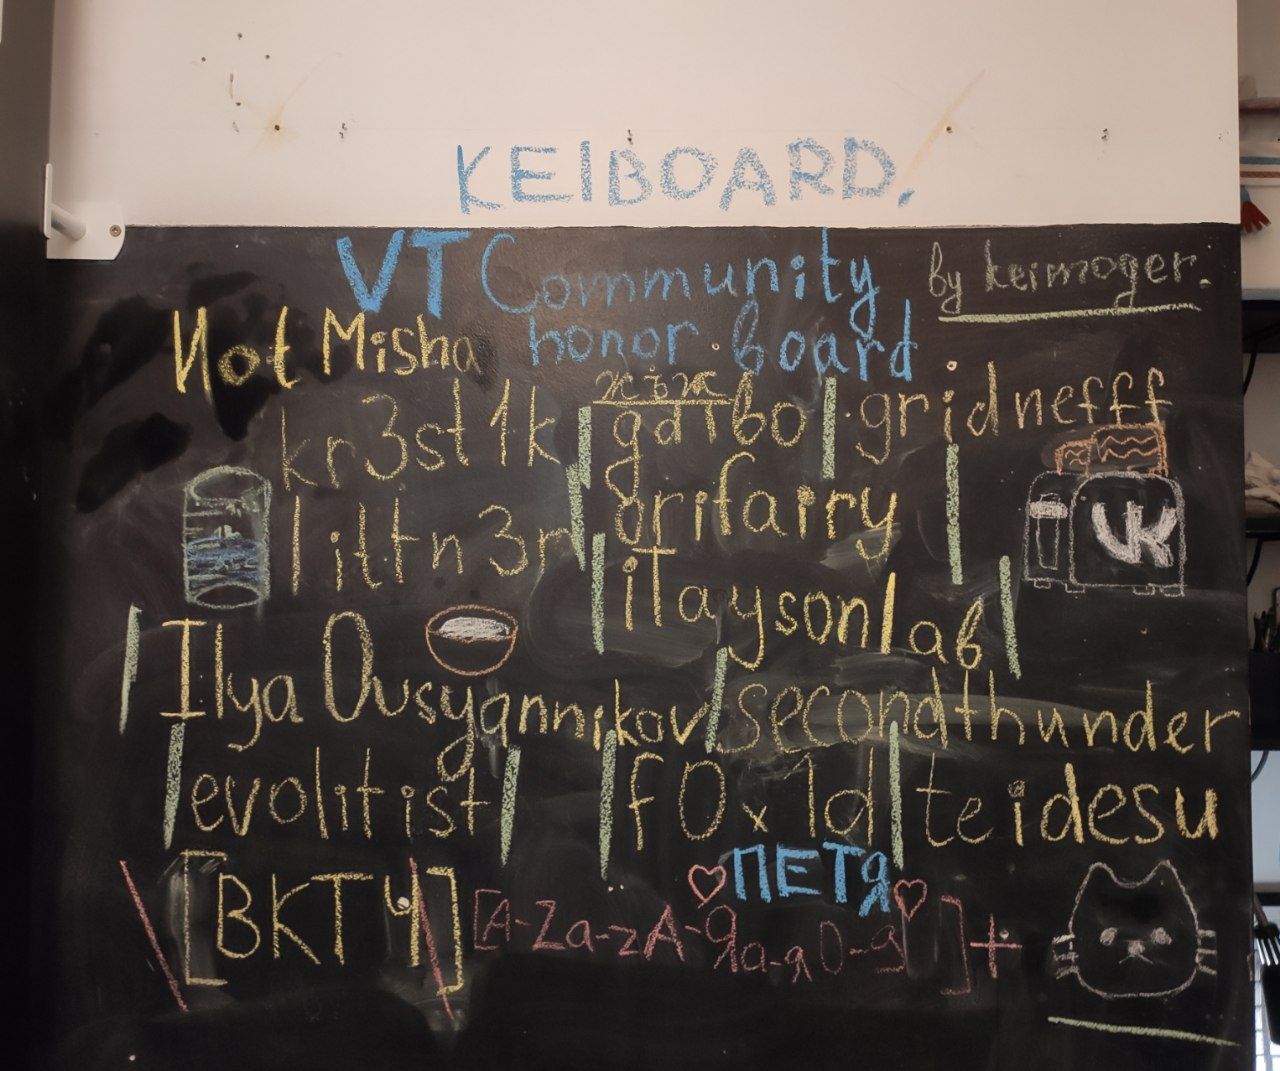 KEIBOARD.
VT Community
by keimoger.
Not Misha
honor board
жъж
kr3st1k
gdtbo
gridnefff
littn3r
grifairy
VK
iTaysonlab
Ilya Ovsyannikov
secondthunder
evolitist
f0x1d
teidesu
ПЕТЯ
\[ВКТЧ\]
[A-Za-zА-Яа-я0-9]+